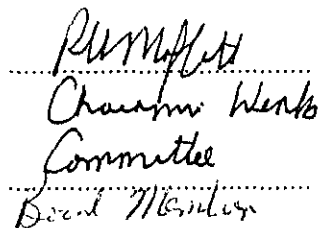 RH Moffett
Chairman Works
Committee
Board Member